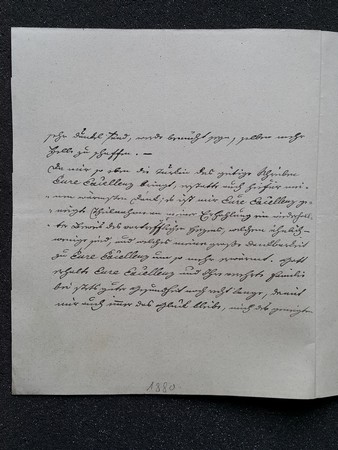 sehr dunkel sind, werde bemüht seyn, selben mehr
Helle zu schaffen. —
Da mir so eben die das gütige Schreiben
Eure Excellenz bringt, erstatte auch hiefür mei-
nen wärmsten Dank; es ist mir Eure Excellenz ge-
neigte Theilnahme an meiner Erhohlung ein wiederhol-
ter Beweis des vortrefflichen Herzens, welchem ähnlich
wenige sind, und welches meine große Dankbarkeit
zu Eure Excellenz um so mehr erwärmt. Gott
erhalte Eure Excellenz und Ihre verehrte Familie
bei stets guter Gesundheit noch recht lange, damit
mir auch immer das Glück bleibe, mich des geneigten
1880